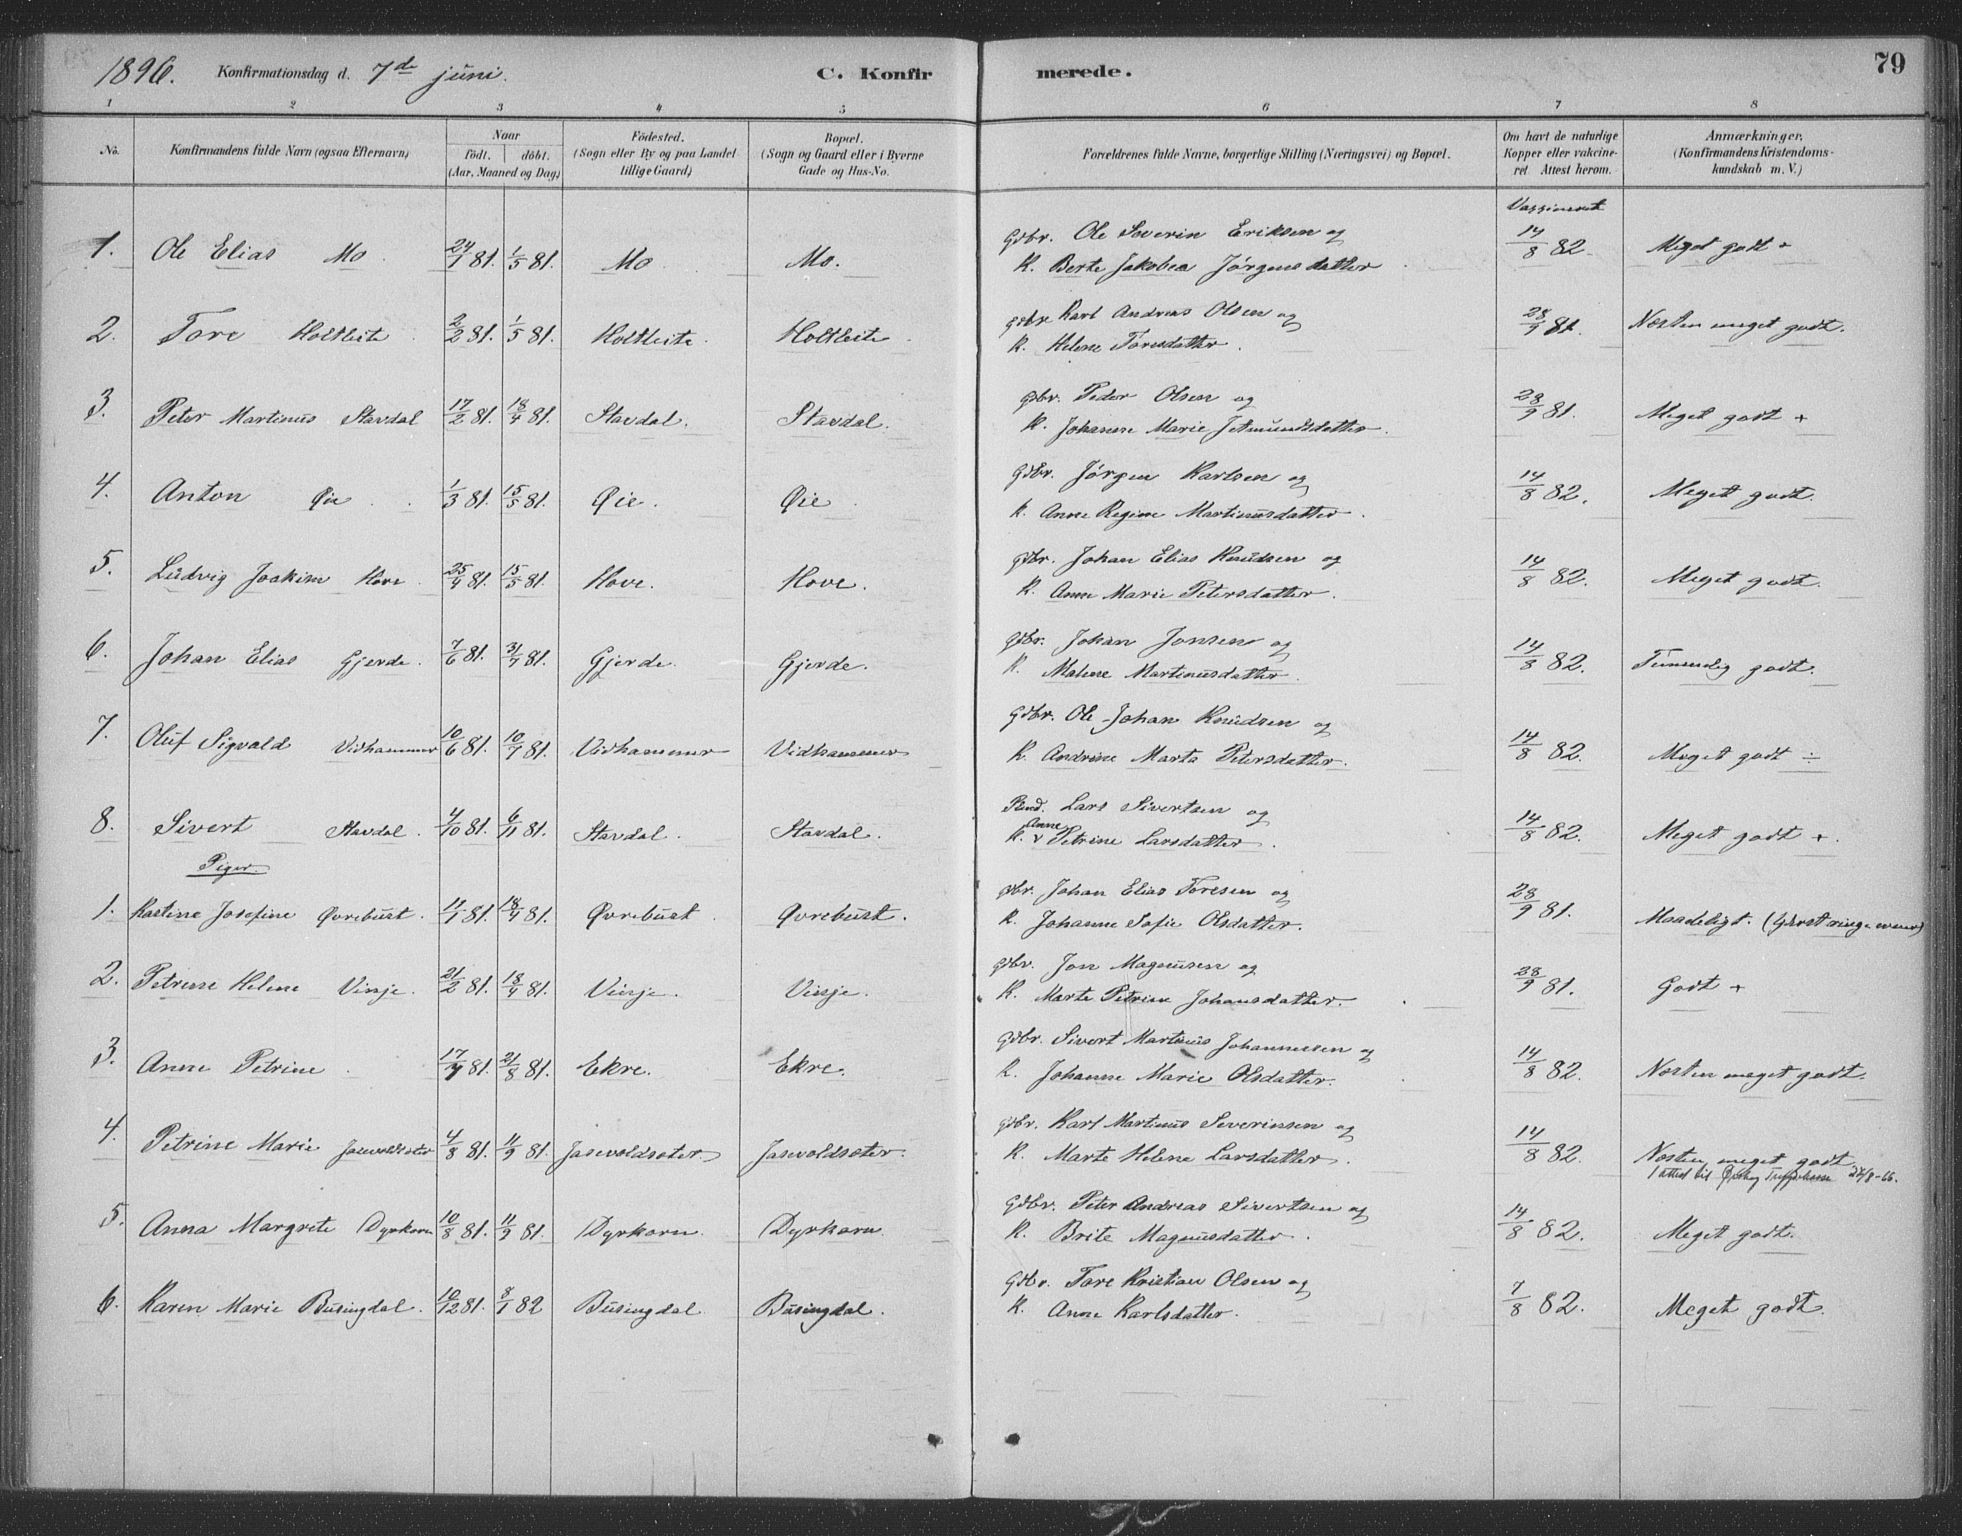 1896. Konfirmationsdag d. 7de juni. C. Konfirmerede. 79
1 2 3 4 5 6 7 8
No. Konfirmandens fulde Navn (ogsaa Efternavn) Naar födt. döbt. (Aar, Maaned og Dag) Födested. (Sogn eller By og paa Landet tillige Gaard) Bopæl. (Sogn og Gaard eller i Byerne Gade og Hus-No. Forældrenes fulde Navne, borgerlige Stilling (Næringsvei) og Bopæl. Om havt de naturlige Kopper eller vakcineret Attest herom. Anmærkninger. (Konfirmandens Kristendomskundskab m. V.)
Vaxineret
1. Ole Elias Mo 24/1 81. 1/5 81. Mo Mo. Gdbr. Ole Severin Eriksen og 14/8 82. Meget godt +
K. Berte Jakobea Jørgensdatter
2. Tore Holtleite 2/2 81. 1/5 81. Holtleite Holtleite Gdbr Karl Andreas Olsen og 28/9 81. Næsten meget godt.
K. Helene Toresdatter.
3. Peter Martinus Stavdal 17/2 81. 18/4 81. Stavdal. Stavdal. Gdbr. Peder Olsen og 28/9 81. Meget godt +
K. Johanne Marie Jetmundsdatter.
4. Anton Øie 1/3 81. 15/5 81. Øie. Øie Gdbr. Jørgen Karlsen og 14/8 82. Meget godt.
K. Anne Regine Martinusdatter.
5. Ludvig Joakim Hove 25/4 81. 15/5 81. Hove. Hove. Gdbr. Johan Elias Knudsen og 14/8 82. Meget godt.
K. Anne Marie Petersdatter.
6. Johan Elias Gjerde. 7/6 81. 31/7 81. Gjerde. Gjerde. Gdbr. Johan Jonsen og 14/8 82. godt.
K. Malene Martinusdatter.
7. Oluf Sigvald Vidhammer 10/6 81. 10/7 81. Vidhammer Vidhammer Gdbr. Ole Johan Knudsen og 14/8 82. Meget godt ÷
K. Andrine Marta Petersdatter.
8. Sivert Stavdal. 4/10 81. 6/11 81. Stavdal. Stavdal. Lars Sivertsen og 14/8 82. Meget godt +.
K. Anne Petrine Larsdatter.
Piger.
1. Kastine Josefine Øvrebust. 11/1 81. 18/4 81. Øvrebust Øvrebust. Gdbr. Johan Elias Toresen og 28/9 81. Maadeligt.
K. Johanne Sofie Olsdatter.
2. Petrine Helene Vinje. 21/2 81. 18/4 81. Vinje. Vinje. Gdbr. Jon Magnusen og 28/9 81. Godt +
K. Marte Petrine Johansdatter.
3. Anne Petrine 17/7 81. 21/8 81. Ekre. Ekre. Gdbr. Sivert Martinus Johannessen og 14/8 82. Næsten meget godt.
K. Johanne Marie Olsdatter.
4. Petrine Marie Jasevoldsæter 4/8 81. 11/9 81. Jasevoldsæter. Jasevoldsæter. Gdbr. Karl Martinus Severinsen og 14/8 82. Næsten meget godt.
K. Marte Helene Larsdatter.
5. Anna Margrete Dyrkorn 10/8 81. 11/9 81. Dyrkorn. Dyrkorn. Gdbr. Peter Andreas Sivertsen og 14/8 82. Meget godt.
K. Brite Magnusdatter.
6. Karen Marie Busingdal. 10/12 81. 8/1 82 Busingdal Busingdal. Gdbr. Tore Kristian Olsen og 7/8 82. Meget godt.
K. Anne Karlsdatter.